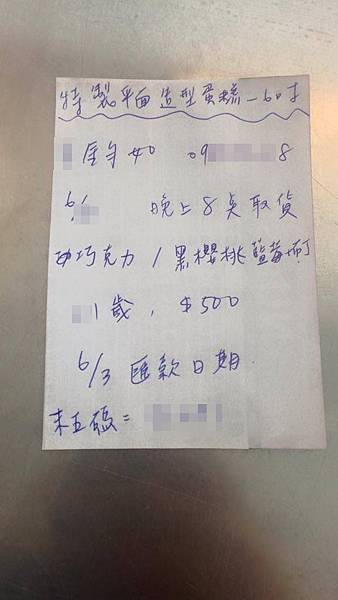 特製平面造型蛋糕-6吋
09 8
6/ 晚上8點取貨
巧克力/黑櫻桃藍莓布丁
1歲, $500
6/3 匯款日期
末五碼=